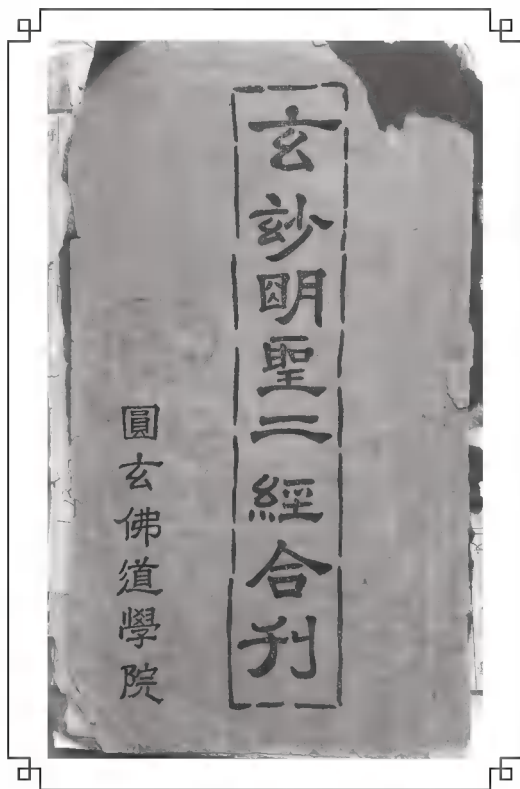 玄玅明聖二經合刋
圓玄佛道學院